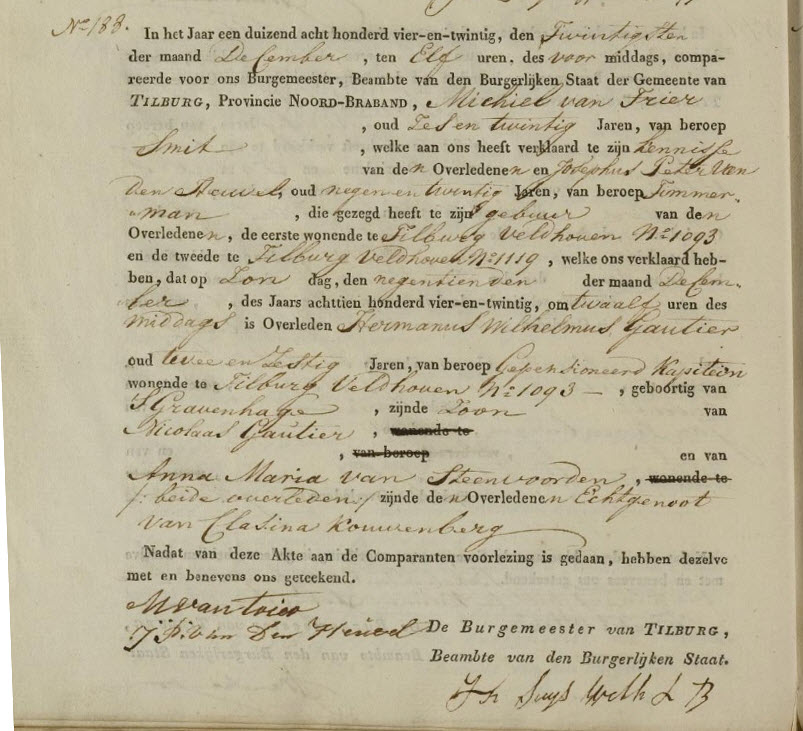 No 188.
In het Jaar een duizend acht honderd vier-en-twintig, den Twintigsten
der maand December, ten Elf uren, des voor middags, compa-
reerde voor ons Burgemeester, Beambte van den Burgerlijken Staat der Gemeente van
TILBURG, Provincie NOORD-BRABAND, Michiel van Trier
, oud Zes en twintig Jaren, van beroep
Smit , welke aan ons heeft verklaard te zijn kennisse
van den Overledenen en Josephus Peter Van
den Heuvel, oud negen en twintig Jaren, van beroep Timmer-
man , die gezegd heeft te zijn gebuur van den
Overledenen, de eerste wonende te Tilburg Veldhoven No 1093
en de tweede te Tilburg Veldhoven No 1119 , welke ons verklaard heb-
ben, dat op Zon dag, den negentienden der maand Decem-
ber , des Jaars achttien honderd vier-en-twintig, om twaalf uren des
middags is Overleden Hermanus Wilhelmus Gautier
oud twee en Zestig Jaren, van beroep Gepensioneerd Kapitein
wonende te Tilburg Veldhoven No 1093 — , geboortig van
S Gravenhage , zijnde Zoon van
Nicolaas Gautier , wonende te
, van beroep en van
Anna Maria van Steenvoorden , wonende te
/: beide overleden :/ zijnde den Overledenen Echtgenoot
van Clasina Kouwenberg
Nadat van deze Akte aan de Comparanten voorlezing is gedaan, hebben dezelve
met en benevens ons geteekend.
M van trier
J P. van Den Heuvel De Burgemeester van TILBURG,
Beambte van den Burgerlijken Staat.
Suys